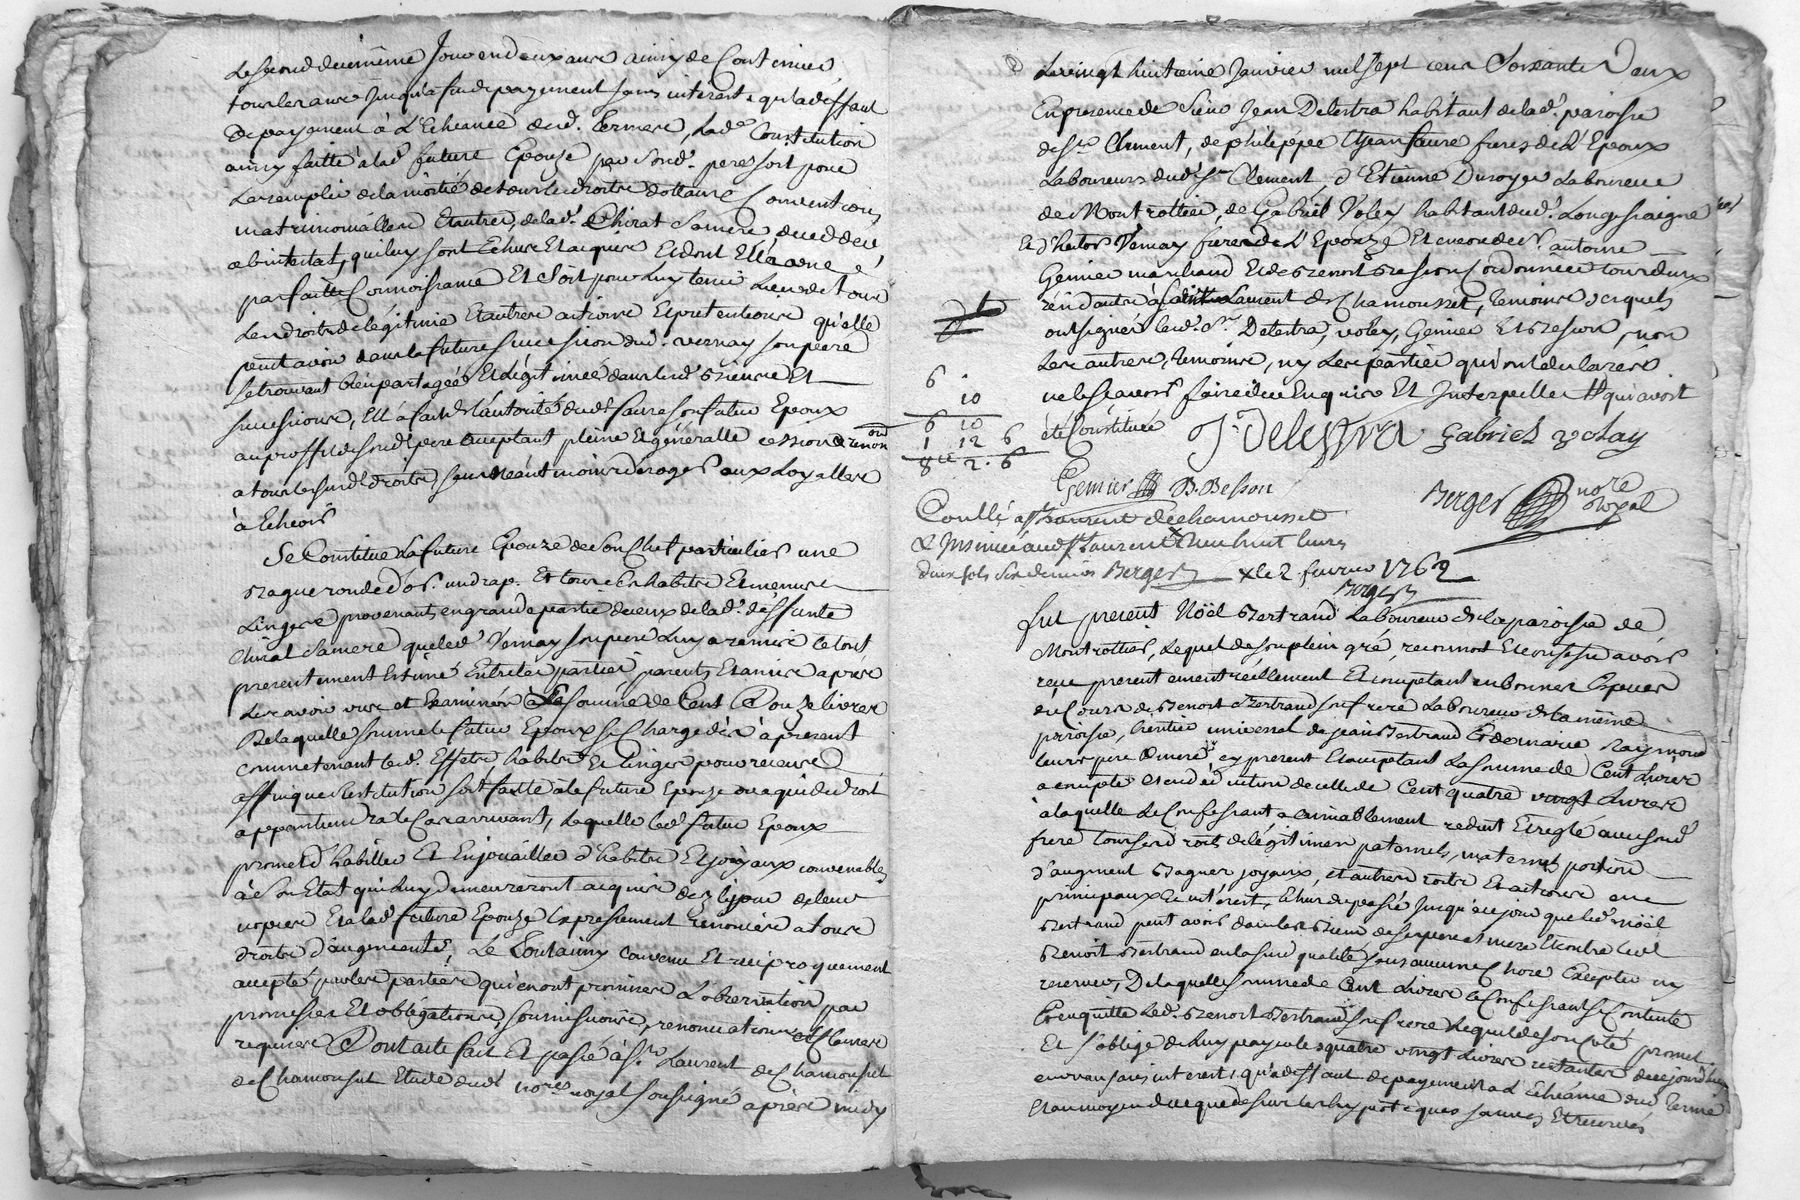 Le second du meme jour en deux ans ainsy de Continuer
tous les ans jusqu'a fin de payement sans interest, qu'a deffaut
De payement à L'Echeance desd. termes, Lad.e Constitution
ainsy faitte à lad. future Epouze par Sond. pere soit pour
Le remplir de la moitié de tous les droits dottaux Conventions
matrimonialles Et autres, de lad. Chirat Sa mere decedeé
ab intestat, qui luy sont Echus Et acquis Et dont Elle a une
parfaitte Connoissance Et Soit pour luy tenir Lieu de tous
Les droits de légitime Et autres actions Et pretentions qu'elle
peut avoir dans la future succession dud. vernay son pere
Se trouvant bien partagée Et légitimée dans lesd. biens Et
successions, Elle a fait de l'autorité dud. faure son futur Epoux
au proffit de sond. pere acceptant pleine Et généralle cession & renon
on
a tous les susd. droits, sans néantmoins déroger aux Loyalles
à Echeoir
Se Constitue La future Epouze de son Chef particulier une
Bague ronde d'or. un drap. Et tous ses habits Et menus
Linges provenants en grande partie de ceux de lad. deffunte
Chirat Sa mere que led. Vernay son pere Luy a remis le tout
presentement Estimé Entre les parties parents Et amis après
Les avoir vus et Examinés à La somme de Cent Douze livres
De laquelle somme le futur Epoux se Charge dès à present
comme tenant lesd. Effets, habits Et Linges pour receus
affin que restitution soit faitte à la future Epouze ou a qui de droit
appartiendra le Cas arrivant, Laquelle led. futur Epoux
promet d'habiller Et Enjoailler d'habits Et joyaux convenables
à Son Etat qui luy demeureront acquis dez le jour de leur
nopces Et a lad. future Epouze Expressement renoncée a tous
droits d'augments, Le Tout ainsy convenu Et reciproquement
accepté par les parties qui en ont promises L'observation par
promesses Et obligations, soumissions, renonciations Et Clauses
requises Dont acte fait Et passé à S.t Laurent de Chamousset
de Chamousset Etude dud. no.re royal soussigné après midy
Le vingt huitieme Janvier mil sept cens Soixante Deux
En presence de Sieur Jean Delestra habitant de lad. paroisse
de S.t Clement, de philippe & Jean faure freres de L'Epoux
Laboureurs dud. S.t Clement, d'Etienne Duroyer Laboureur
de Montrottier, de Gabriel Voley habitant dud. Longessaigne
Et d'hector Vernay frere de L'Epouze Et encore de S.r antoine
Genier marchand Et de Benoit Besson Cordonnier tous deux
résidants à Saint Laurent de Chamousset, temoins desquels
ont signés led. S.r Delestra, voley, Genier Et Besson, non
Les autres, temoins, ny Les parties qui ont declarées
ne le sçavoir faire de ce Enquis Et Interpellés # qui avoit
été Constituée
6 .
10
6 10
1 12 6
8 tt 2. 6
J. Delestra Gabriel voley
Genier B. Besson
Berger no.re Royal
Conllé à S.t Laurent de Chamousset
& Insinué aud. S.t Laurent Receu huit livres
deux sols six deniers Berger x le 2. fevrier 1762
Berger
fut present Noël Bertrand Laboureur de la paroisse de
Montrottier, Lequel de son plein gré, reconnoit Et confesse avoir
reçu presentement réellement Et comptant en bonnes Especes
de Cours de Benoit Bertrand son frere Laboureur de la même
paroisse, heritier universel de jean Bertrand Et de marie Raymond
leurs pere & mere, cy present Et acceptant La somme de Cent Livres
a compte Et en déduction de celle de Cent quatre vingt Livres
à laquelle Le Confessant a amiablement reduit Et reglé avec sond.
frere tous ses droits de légitimes paternels, maternels, portion
d'augment Bagues joyaux, et autres droits Et actions en
principaux Et intérest, Echus du passé jusqu'à ce jour que led. Noël
Bertrand peut avoir dans les biens de ses pere et mere Et contre led.
Benoit Bertrand en la susd. qualité sans aucune Chose Excepter ny
reserver, De laquelle somme de Cent Livres le Confessant se Contente
Et en quitte led. Benoit Bertrand son frere Lequel de son Coté promet
Et s'oblige de luy payer les quatre vingt Livres restantes de ce jourd'huy
en un an sans interest, qu'a deffaut de payement à L'Echéance dud. terme
Et au moyen de ce que dessus les hypoteques sauves Et reservés